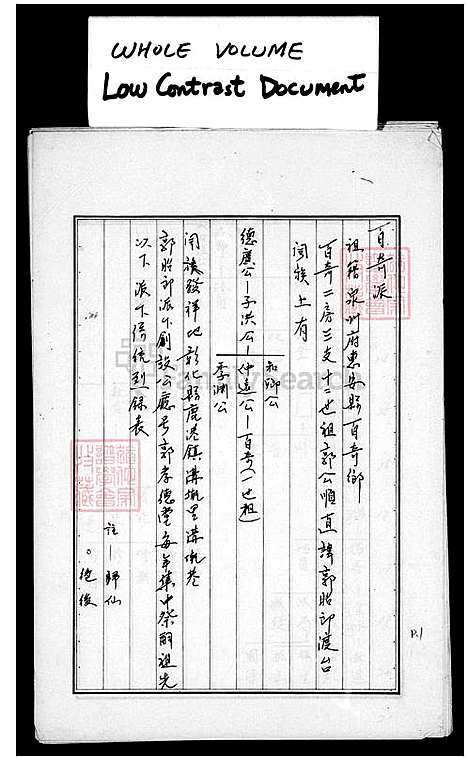 WHOLE VOLUME
Low Contrast Document
百奇派
祖籍泉州府惠安縣百奇鄉
百奇二房三支十二世祖郭公順直諱郭貽郎渡台
開族上有
和卿公
德廣公—子洪公—仲遠公—百奇(一世祖)
季淵公
開族發祥地彰化縣鹿港鎮溝墘里溝墘巷
郭貽郎派下創設公廳号郭孝德堂每年集中祭祠祖先
以下派下傳統列錄表
註—歸仙
○絕後
P.1